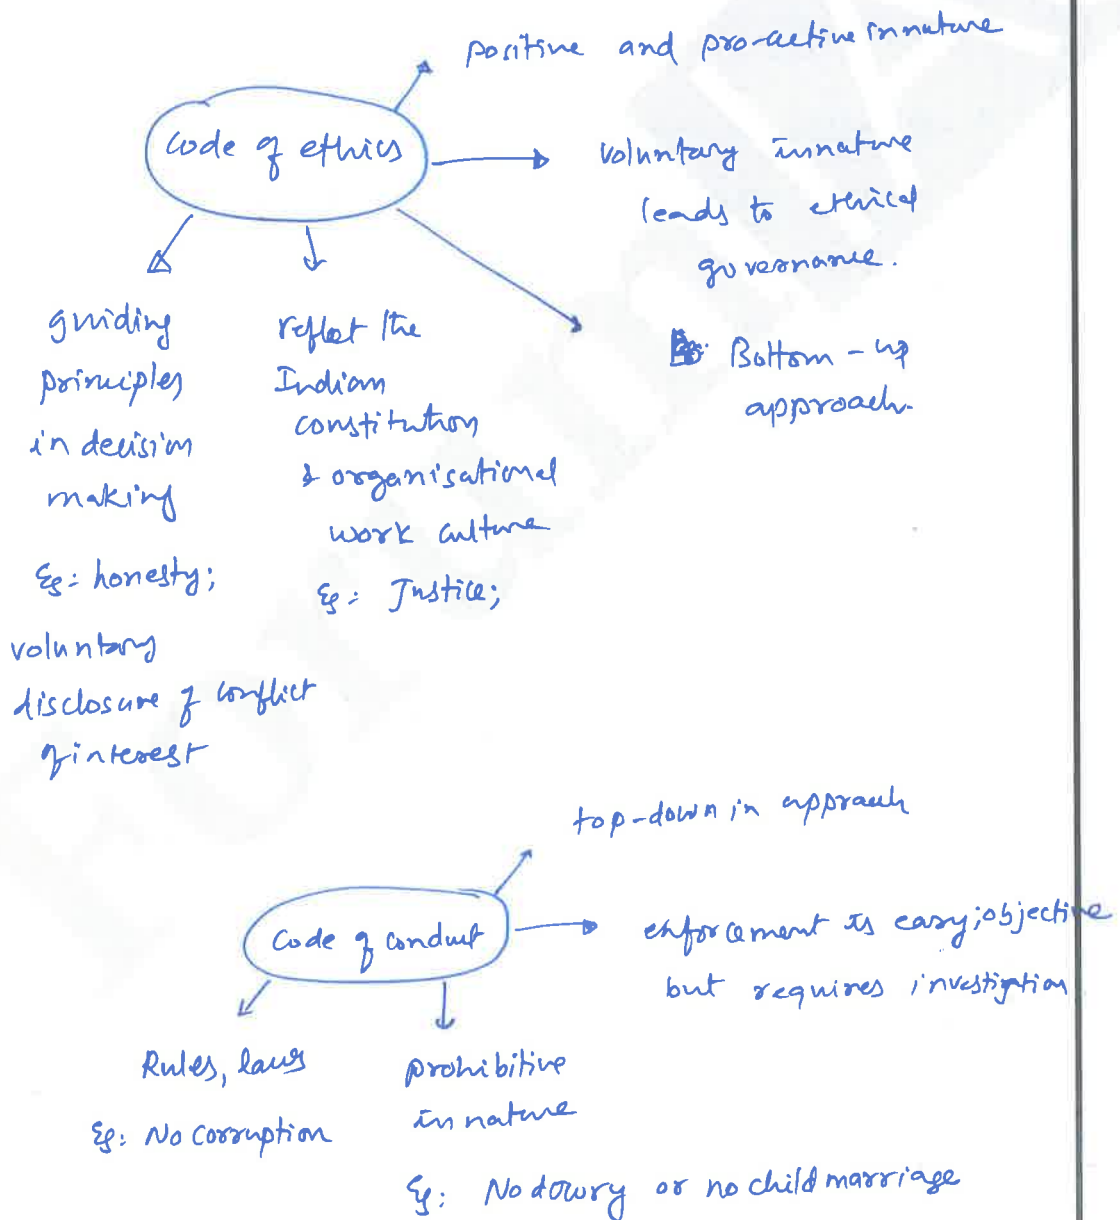 positive and pro-active innature
Code of ethics
voluntary innature
leads to ethical
governance.
guiding
principles
in decision
making
Eg: honesty;
voluntary
disclosure of conflict
of interest
reflet the
Indian
constitution
& organisational
work culture
Eg: Justice;
Bottom - up
approach.
top-down in appraach
Code of conduct
enforcement is easy; objective
but requires investigation
Rules, laws
Eg: No corruption
prohibitive
in nature
Eg: No dowry or no child marriage